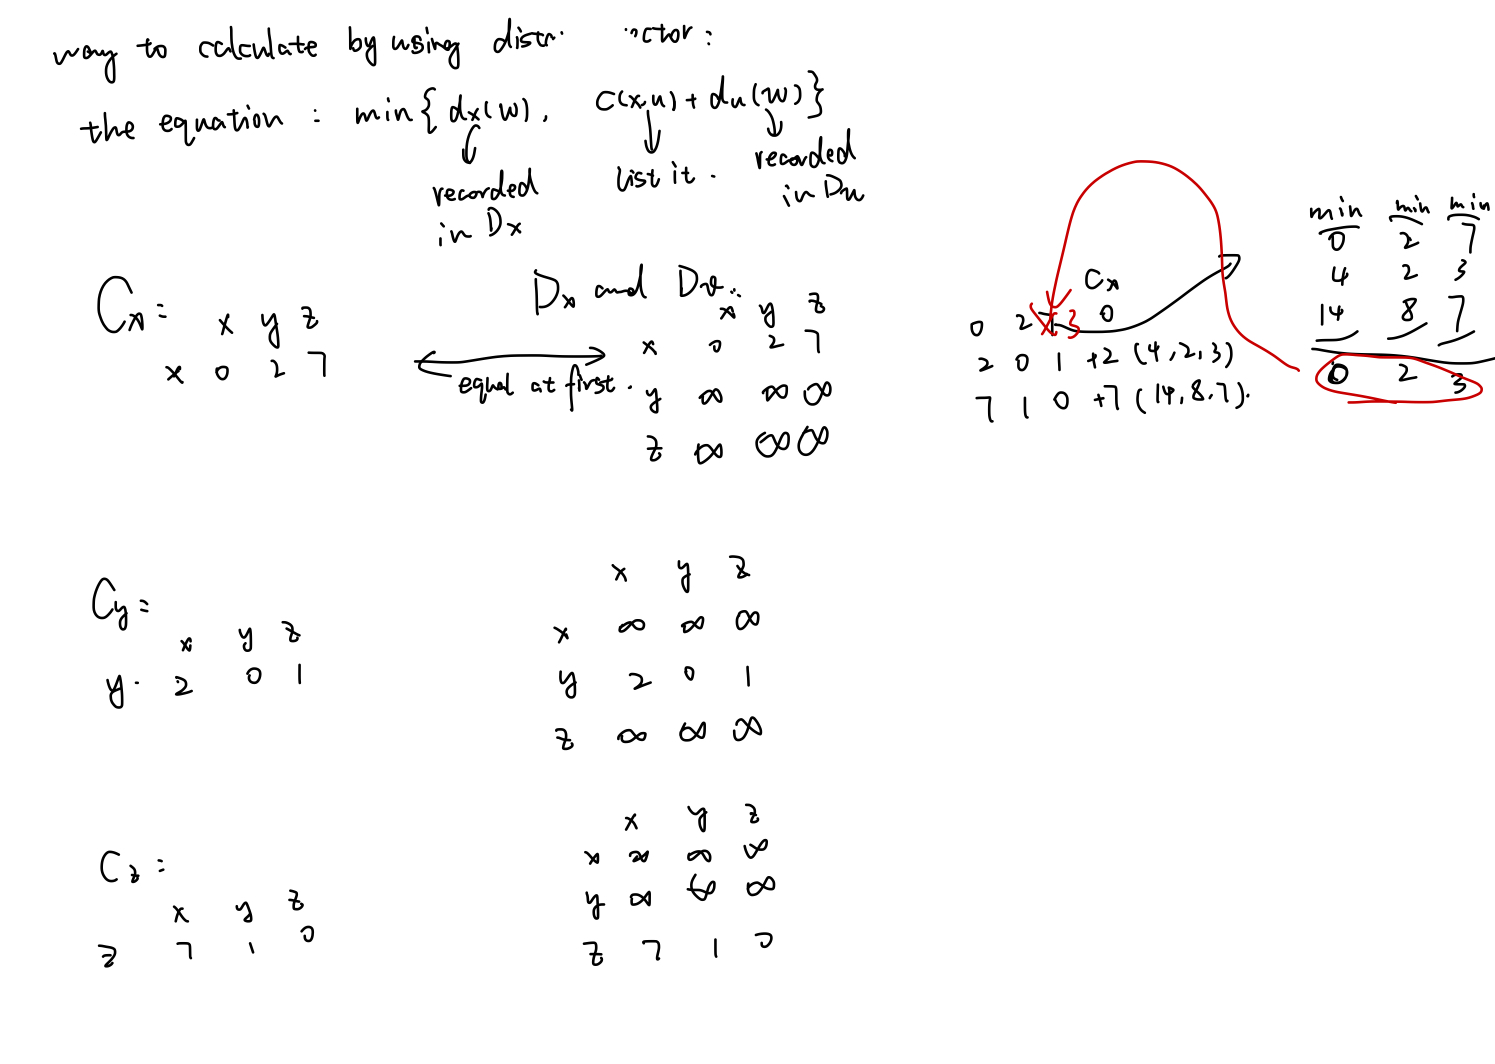 way to calculate by using
the equation : min{ dx(w), C(x,u) + du(w)}
recorded in Dx
list it.
recorded in Du
Cx =
x y z
x 0 2 7
equal at first.
Dx and Dv:
x y z
x 0 2 7
y ∞ ∞ ∞
z ∞ ∞ ∞
Cx
0 2 3 0
2 0 1 +2 (4,2,3)
7 1 0 +7 (14,8,7).
min min min
0 2 7
4 2 3
14 8 7
0 2 3
Cy =
x y z
y. 2 0 1
x y z
x ∞ ∞ ∞
y 2 0 1
z ∞ ∞ ∞
Cz :
x y z
z 7 1 0
x y z
x ∞ ∞ ∞
y ∞ ∞ ∞
z 7 1 0